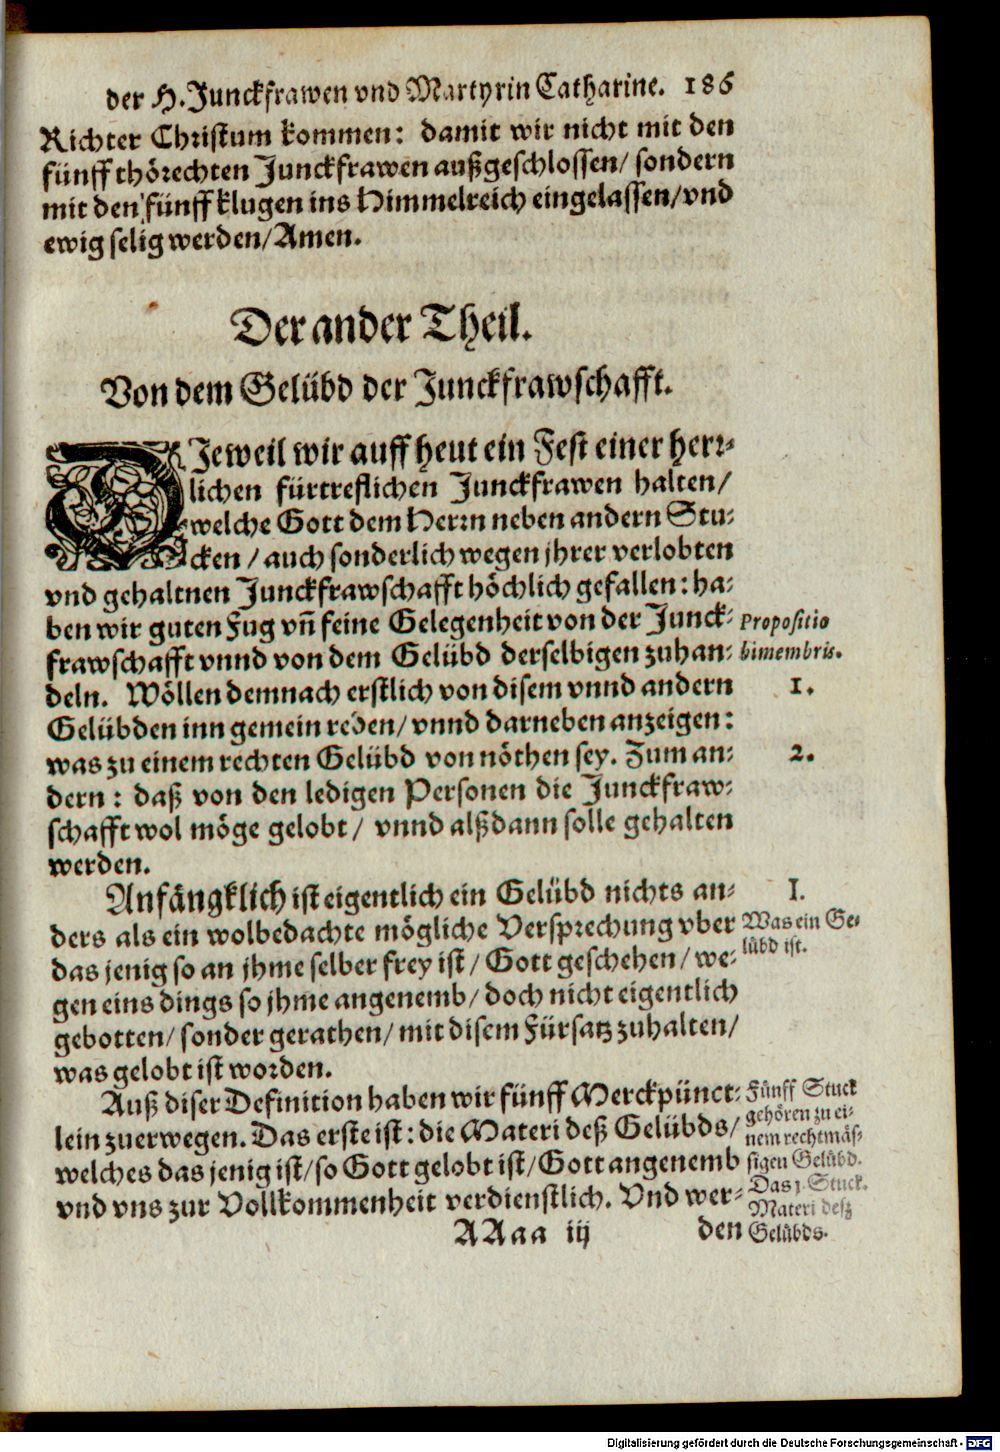 der H. Junckfrawen vnd Martyrin Catharine. 186
Richter Christum kommen: damit wir nicht mit den
fünff thörechten Junckfrawen außgeschlossen/ sondern
mit den fünff klugen ins Himmelreich eingelassen/ vnd
ewig selig werden/ Amen.
Der ander Theil.
Von dem Gelübd der Junckfrawschafft.
DJeweil wir auff heut ein Fest einer herr-
lichen fürtreflichen Junckfrawen halten/
welche Gott dem Herrn neben andern Stu-
cken / auch sonderlich wegen jhrer verlobten
vnd gehaltnen Junckfrawschafft höchlich gefallen: ha-
ben wir guten Fug vñ feine Gelegenheit von der Junck-
frawschafft vnnd von dem Gelübd derselbigen zuhan-
deln. Wöllen demnach erstlich von disem vnnd andern
Gelübden inn gemein reden/ vnnd darneben anzeigen:
was zu einem rechten Gelübd von nöthen sey. Zum an-
dern: daß von den ledigen Personen die Junckfraw-
schafft wol möge gelobt / vnnd alßdann solle gehalten
werden.
Propositio
bimembris.
1.
2.
Anfängklich ist eigentlich ein Gelübd nichts an-
ders als ein wolbedachte mögliche Versprechung vber
das jenig so an jhme selber frey ist/ Gott geschehen/ we-
gen eins dings so jhme angenemb/ doch nicht eigentlich
gebotten/ sonder gerathen/ mit disem Fürsatz zuhalten/
was gelobt ist worden.
I.
Was ein Ge-
lübd ist.
Auß diser Definition haben wir fünff Merckpünct-
lein zuerwegen. Das erste ist: die Materi deß Gelübds/
welches das jenig ist/ so Gott gelobt ist/ Gott angenemb
vnd vns zur Vollkommenheit verdienstlich. Vnd wer-
Fünff Stuck
gehören zu ei-
nem rechtmäs-
sigen Gelübd.
Das j. Stuck.
Materi desz
Gelübds.
AAaa iij
den
Digitalisierung gefördert durch die Deutsche Forschungsgemeinschaft - DFG